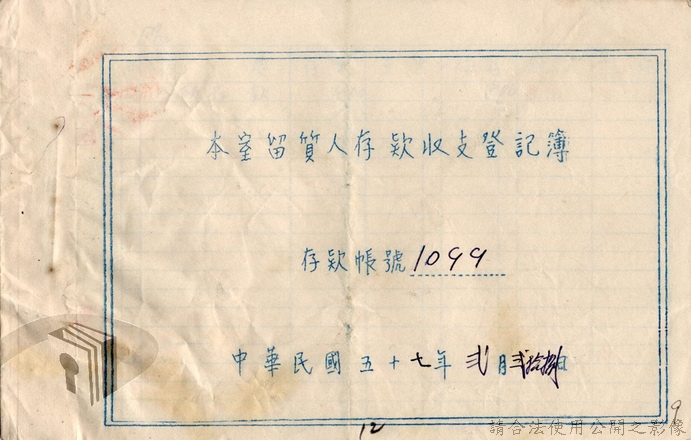 本室留質人存款收支登記簿
存款帳號1099
中華民國五十七年 貳月貳拾捌日
12
9
請合法使用公開之影像